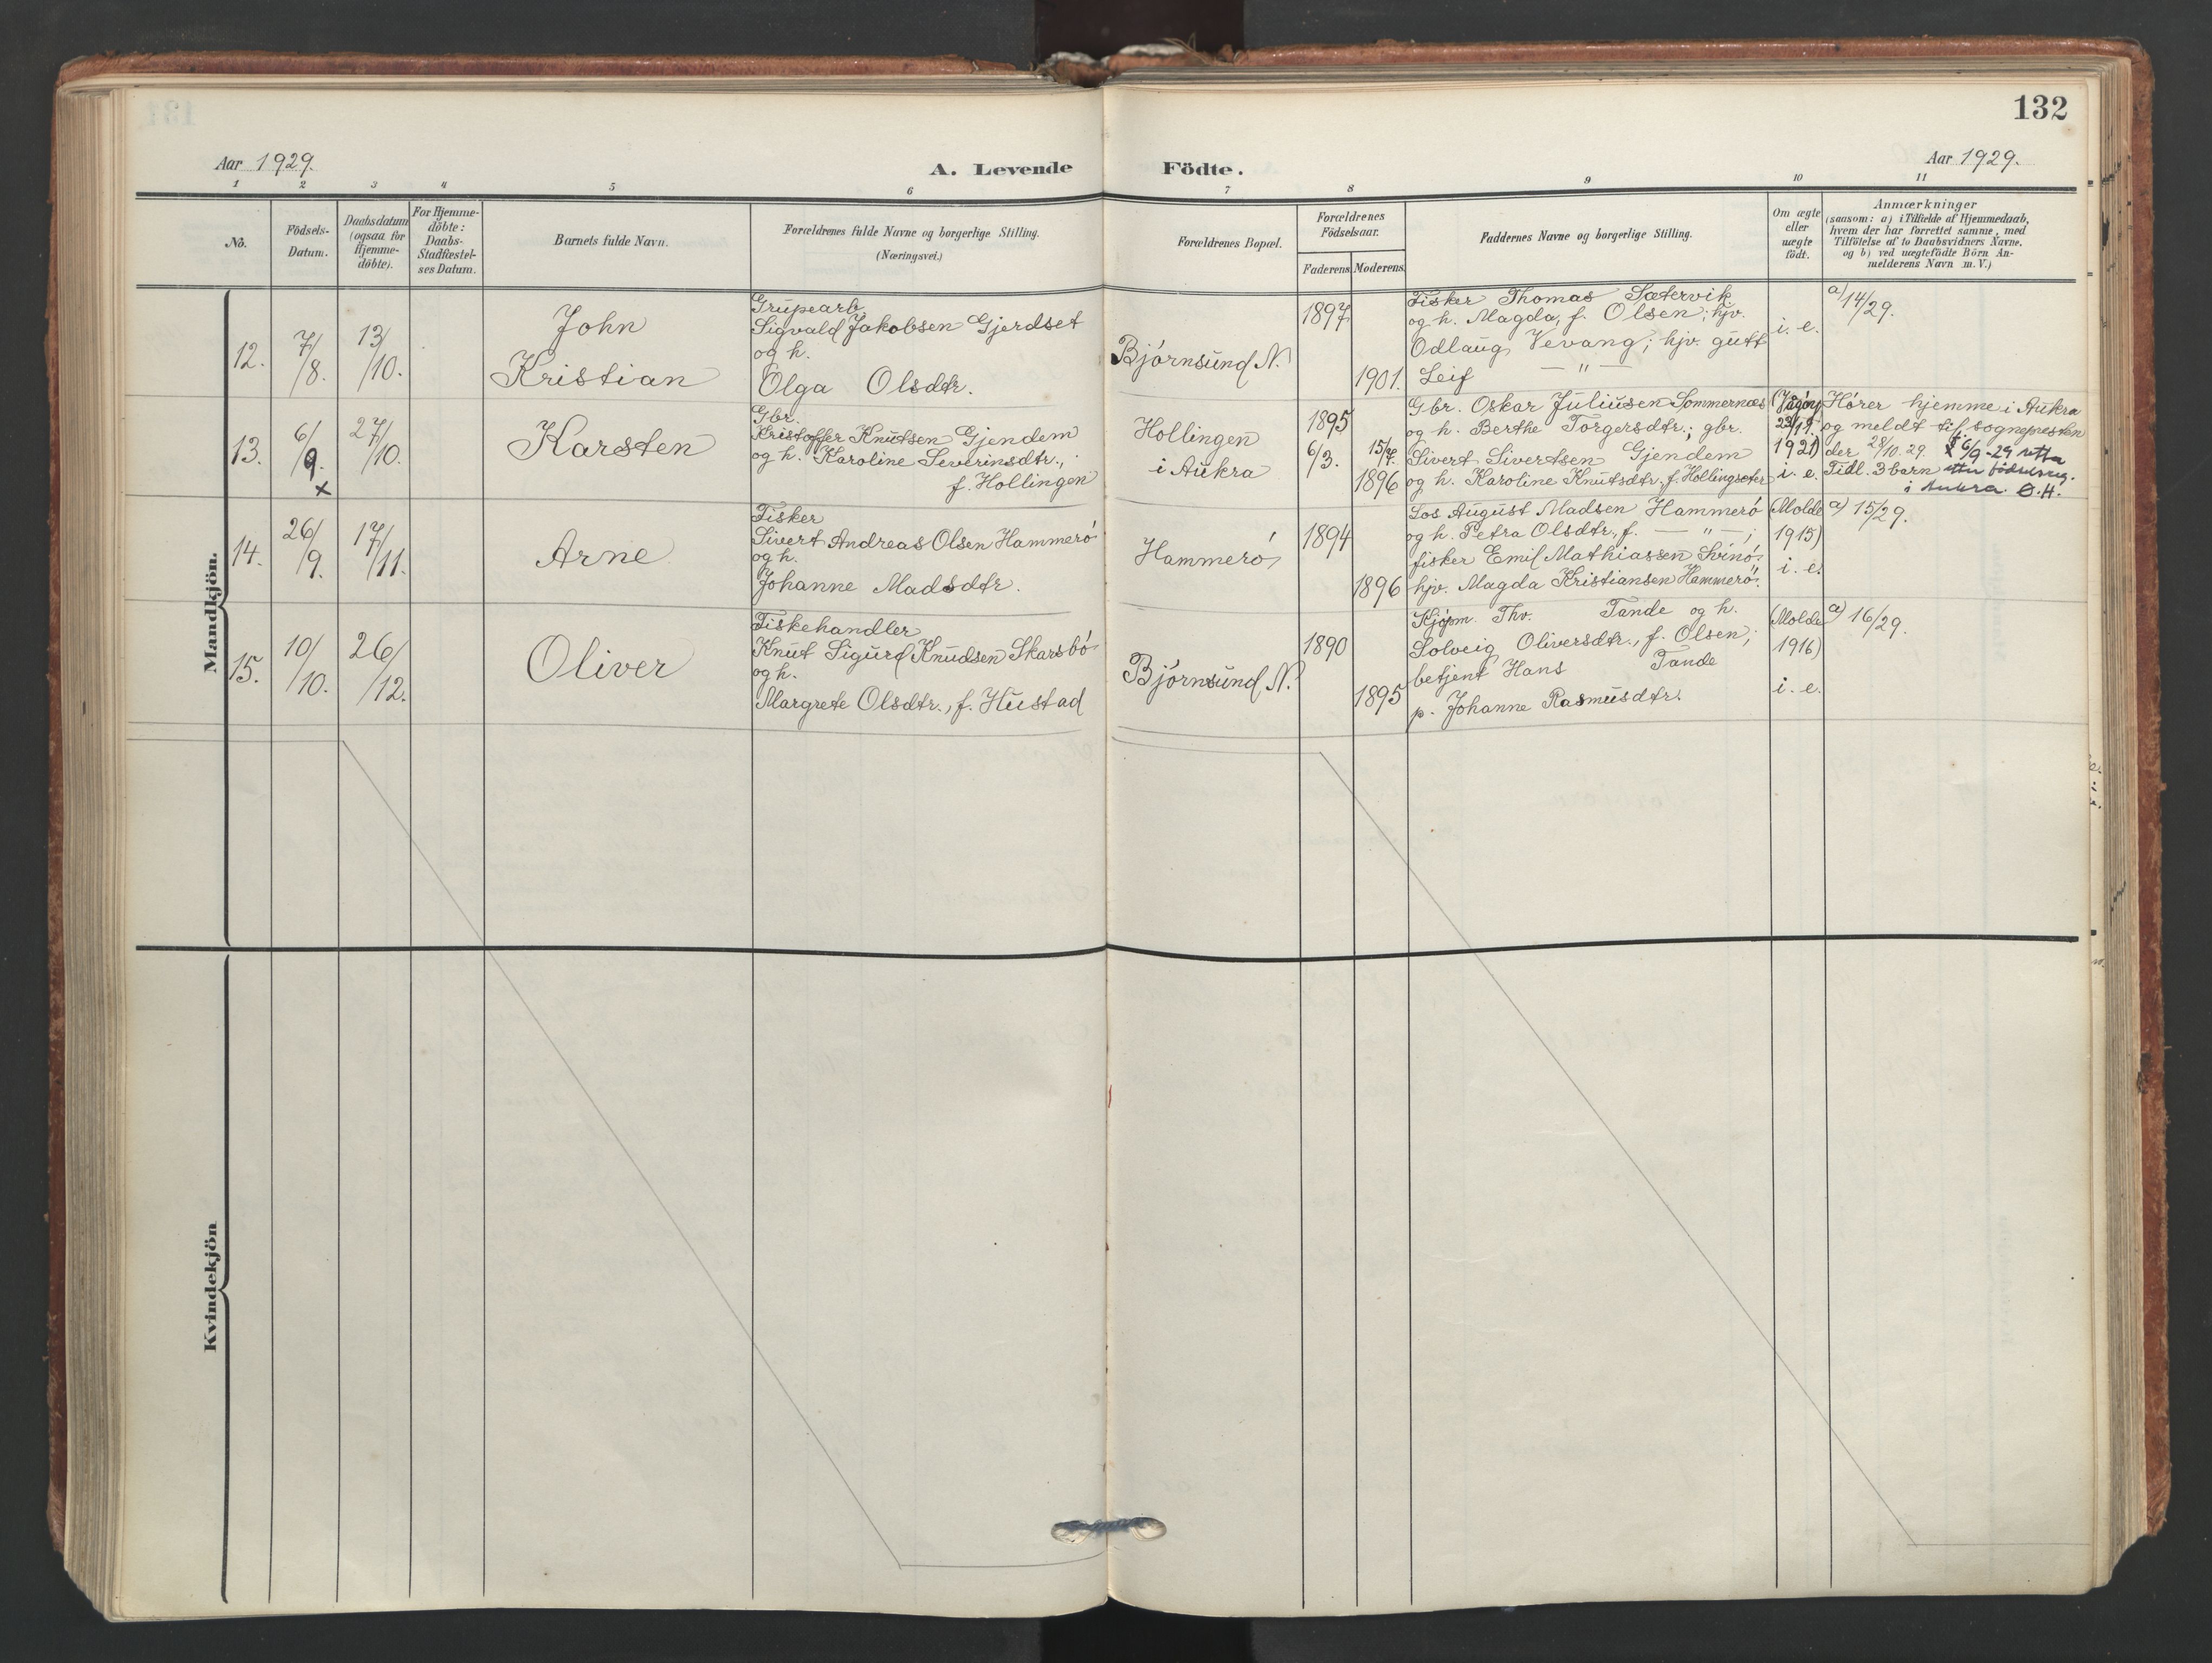 132
Aar 1929.
A. Levende Födte.
Aar 1929.
1 2 3 4 5 6 7 8 9 10 11
No.
Födsels-
Datum.
Daabsdatum
(ogsaa for
Hjemme-
döbte).
For Hjemme-
döbte:
Daabs-
Stadfæstel-
ses Datum.
Barnets fulde Navn.
Forældrenes fulde Navne og borgerlige Stilling.
(Næringsvei.)
Forældrenes Bopæl.
Forældrenes
Födselsaar.
Faderens Moderens.
Faddernes Navne og borgerlige Stilling.
Om ægte
eller
uægte
födt.
Anmærkninger
(saasom: a) i Tilfælde af Hjemmedaab,
hvem der har forrettet samme, med
Tilföielse af to Daabsvidners Navne.
og b) ved uægtefödte Börn An-
melderens Navn m. V.)
Mandkjön.
12.
7/8.
13/10.
John
Kristian
Grupearb.
Sigvald Jakobsen Gjerdset
og h.
Olga Olsdtr.
Björnsund N.
1897
1901.
Fisker Thomas Sætervik
og h. Magda, f. Olsen; hjv.
Odlaug Vevang; hjv. gutt
Leif — " —
i. e.
a) 14/29.
13.
6/9.
x
27/10.
Karsten
Gbr.
Kristoffer Knutsen Gjendem
og h. Karoline Severinsdtr.,
f. Hollingen
Hollingen
i Aukra
1895
6/3.
15/7.
1896
Gbr. Oskar Juliusen Sommernæs
og h. Berthe Torgersdtr.; gbr.
Sivert Sivertsen Gjendem
og h. Karoline Knutsdtr. f. Hollingseter
1921)
i. e.
Hører hjemme i Aukra
og meldt til sognepresten
der 28/10.29. x 6/9-29 retta
Tidl. 3 barn etter födselsreg.
i Aukra. O.H.
14.
26/9.
17/11.
Arne
Fisker
Sivert Andreas Olsen Hammerö
og h.
Johanne Madsdtr.
Hammerö
1894
1896
Los August Madsen Hammerö
og h. Petra Olsdtr., f. — " —;
fisker Emil Mathiassen Svinö.
hjv. Magda Kristiansen Hammerö.
(Molde
1915)
i. e.
a) 15/29.
15.
10/10.
26/12.
Oliver
Fiskehandler
Knut Sigurd Knudsen Skarsbö
og h.
Margrete Olsdtr., f. Hustad
Björnsund N.
1890
1895
Kjöpm. Thv. Tande og h.
Solveig Oliversdtr., f. Olsen;
betjent Hans Tande
p. Johanne Rasmusdtr.
(Molde
1916)
i. e.
a) 16/29.
Kvindekjön